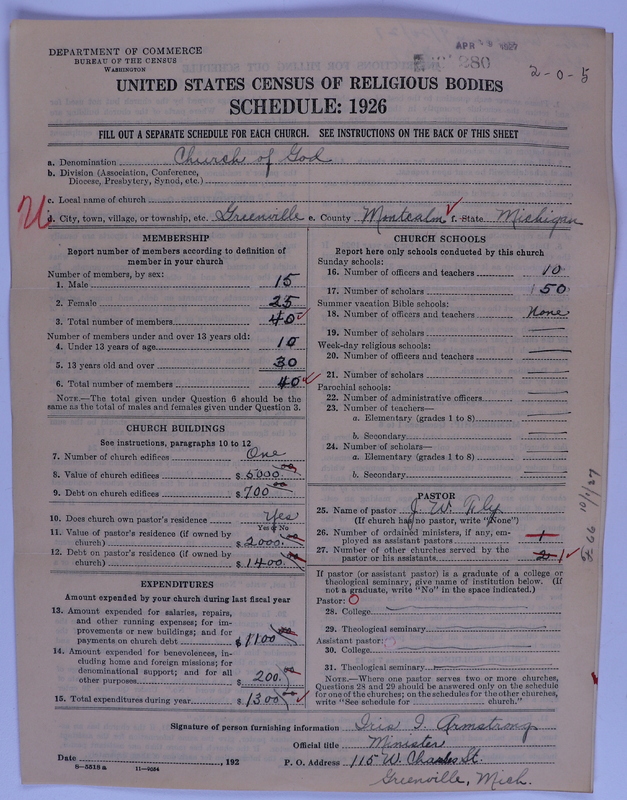 DEPARTMENT OF COMMERCE
BUREAU OF THE CENSUS
WASHINGTON
APR 1927
280
2-0-5
UNITED STATES CENSUS OF RELIGIOUS BODIES
SCHEDULE: 1926
FILL OUT A SEPARATE SCHEDULE FOR EACH CHURCH. SEE INSTRUCTIONS ON THE BACK OF THIS SHEET
a. Denomination Church of God
b. Division (Association, Conference, Diocese, Presbytery, Synod, etc.)
c. Local name of church
d. City, town, village, or township, etc. Greenville e. County Montcalm f. State Michigan
MEMBERSHIP
Report number of members according to definition of member in your church
Number of members, by sex:
1. Male 15
2. Female 25
3. Total number of members 40
Number of members under and over 13 years old:
4. Under 13 years of age 10
5. 13 years old and over 30
6. Total number of members 40
NOTE.—The total given under Question 6 should be the same as the total of males and females given under Question 3.
CHURCH BUILDINGS
See instructions, paragraphs 10 to 12
7. Number of church edifices One
8. Value of church edifices $ 5000.00
9. Debt on church edifices $ 700.00
10. Does church own pastor's residence Yes
Yes or No
11. Value of pastor's residence (if owned by church) $ 2000.00
12. Debt on pastor's residence (if owned by church) $ 1400.00
EXPENDITURES
Amount expended by your church during last fiscal year
13. Amount expended for salaries, repairs, and other running expenses; for improvements or new buildings; and for payments on church debt $ 1100.00
14. Amount expended for benevolences, including home and foreign missions; for denominational support; and for all other purposes $ 200.00
15. Total expenditures during year $ 1300.00
CHURCH SCHOOLS
Report here only schools conducted by this church
Sunday schools:
16. Number of officers and teachers 10
17. Number of scholars 50
Summer vacation Bible schools:
18. Number of officers and teachers None
19. Number of scholars
Week-day religious schools:
20. Number of officers and teachers
21. Number of scholars
Parochial schools:
22. Number of administrative officers
23. Number of teachers—
a. Elementary (grades 1 to 8)
b. Secondary
24. Number of scholars—
a. Elementary (grades 1 to 8)
b. Secondary
PASTOR
25. Name of pastor J. W.
(If church has no pastor, write "None")
26. Number of ordained ministers, if any, employed as assistant pastors 1
27. Number of other churches served by the pastor or his assistants 2 1
If pastor (or assistant pastor) is a graduate of a college or theological seminary, give name of institution below. (If not a graduate, write "No" in the space indicated.)
Pastor:
28. College
29. Theological seminary
Assistant pastor:
30. College
31. Theological seminary
NOTE.—Where one pastor serves two or more churches, Questions 28 and 29 should be answered only on the schedule for one of the churches; on the schedules for the other churches, write "See schedule for church."
10/1/27
Signature of person furnishing information Iris I. Armstrong
Official title Minister
Date , 192 P. O. Address 115 W. Charles St.
8—5518a 11—9054 Greenville, Mich.